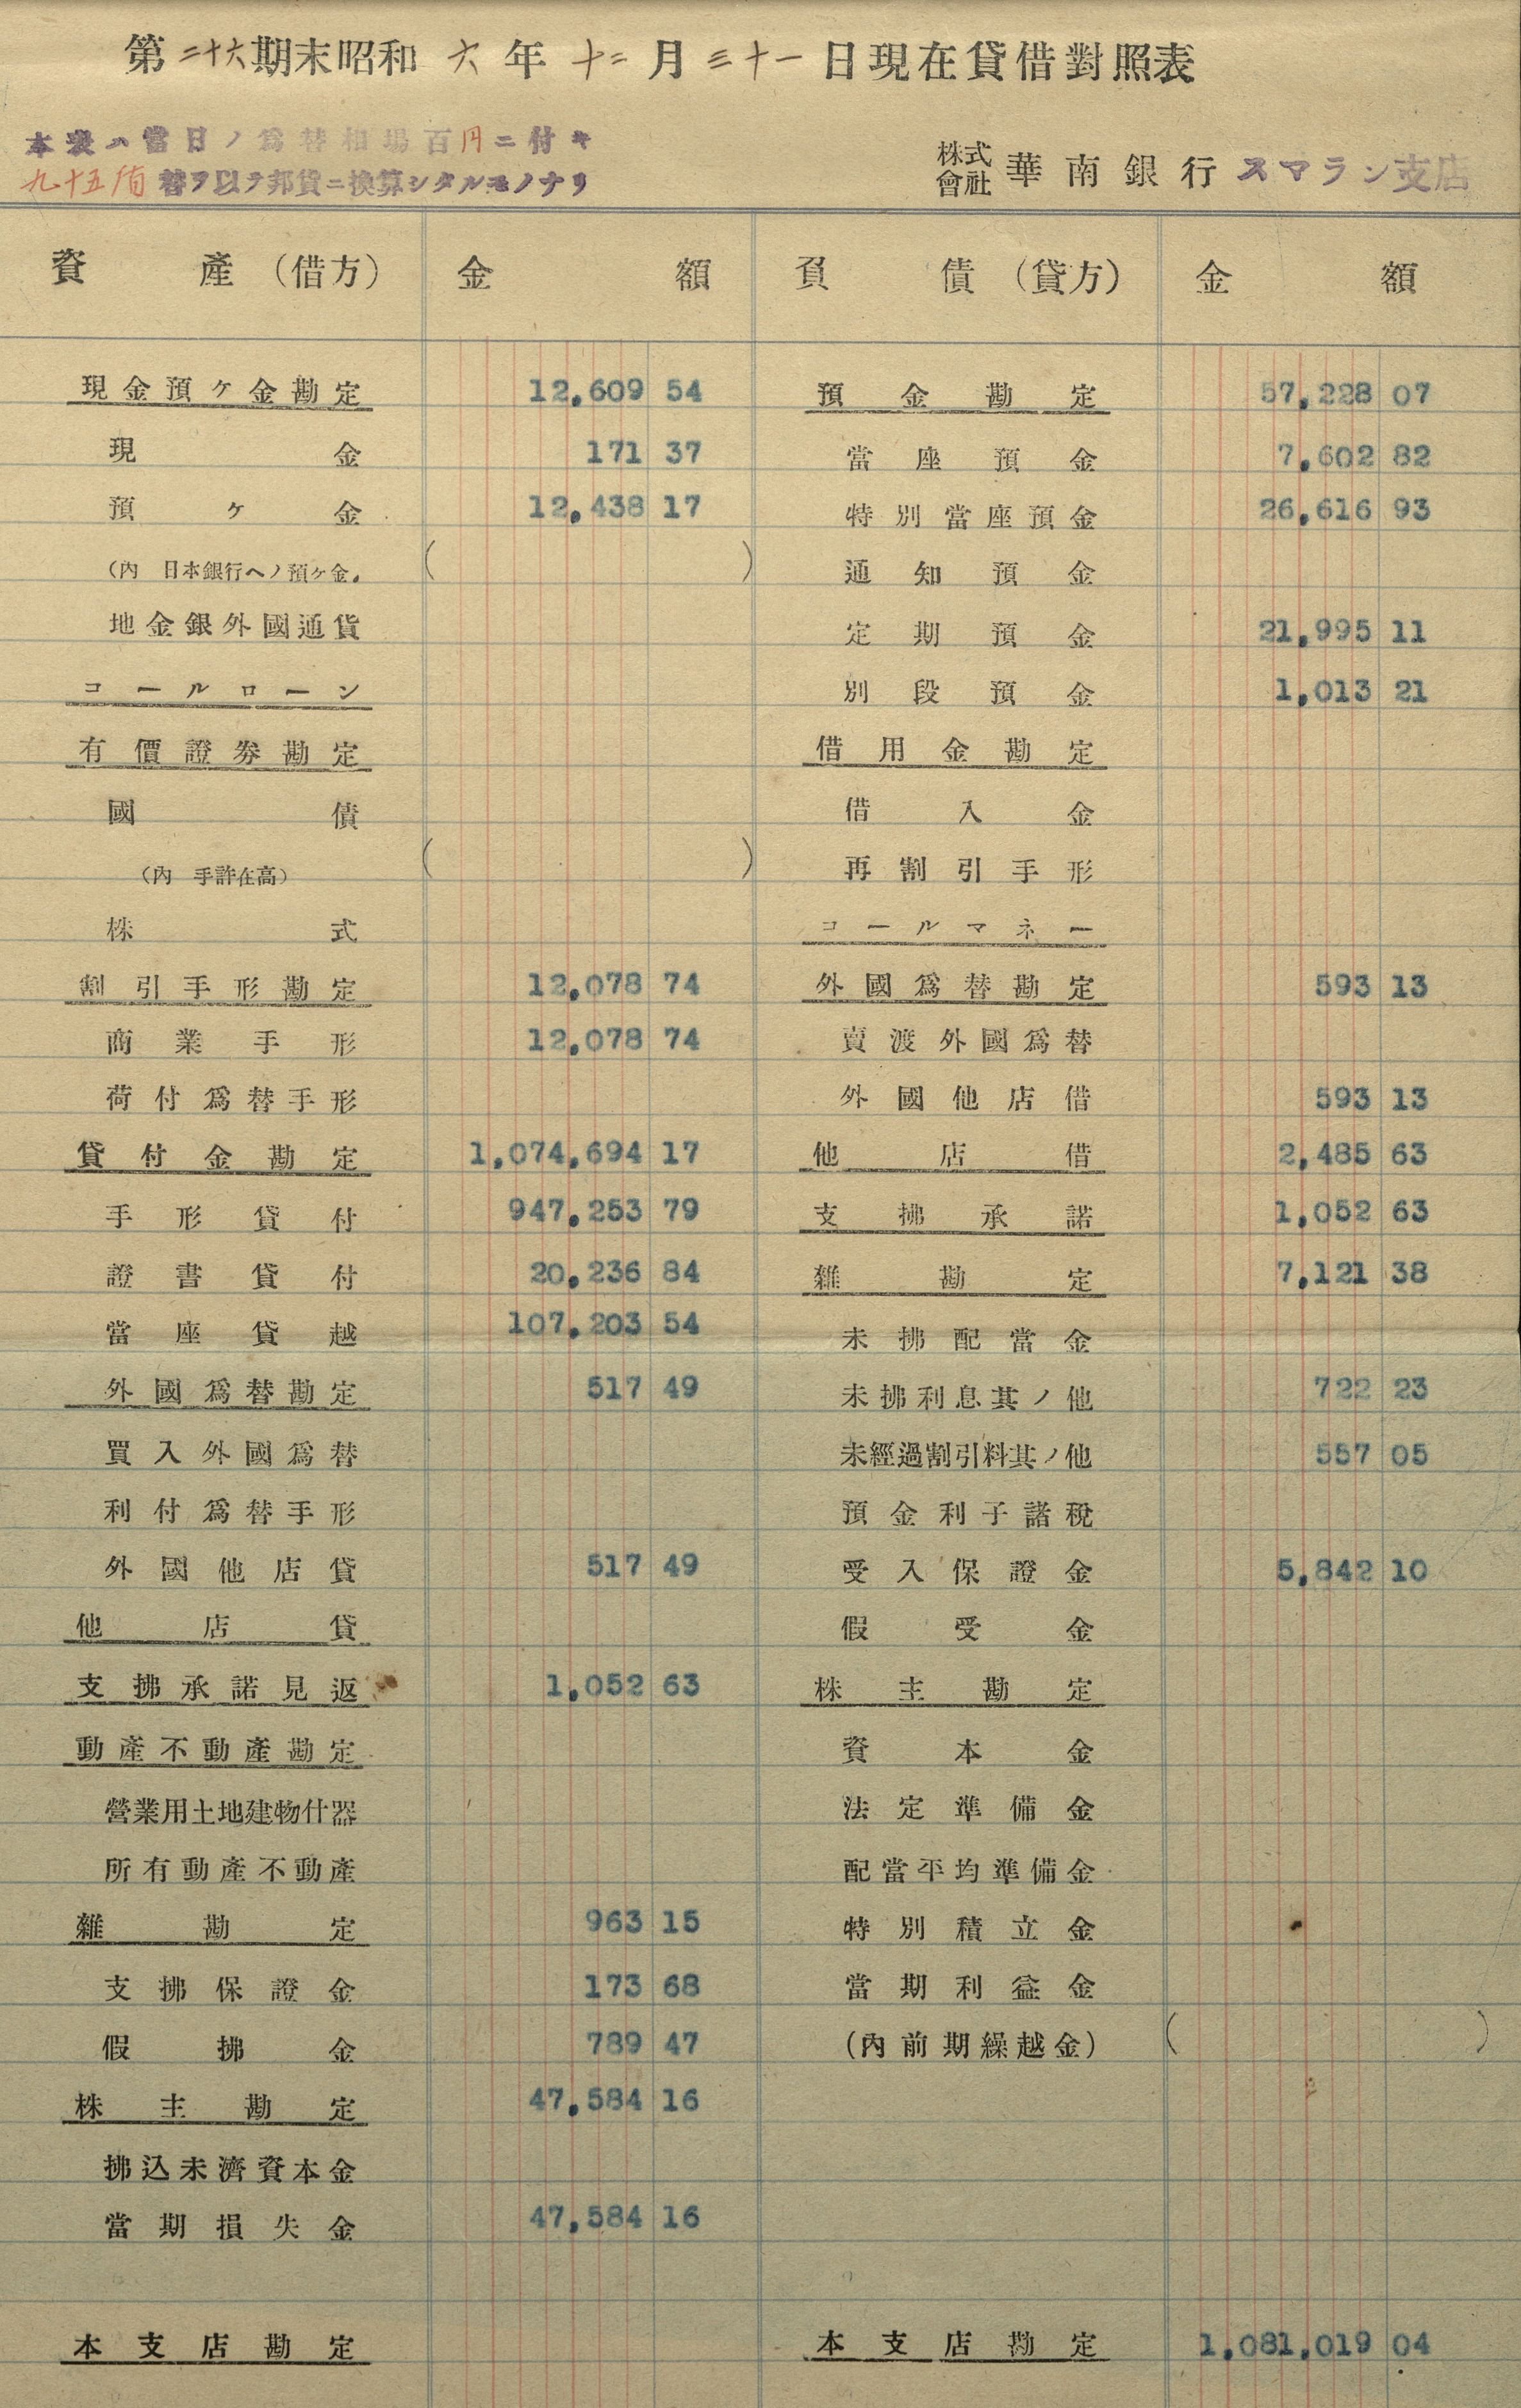 第二十六期末昭和六年十二月三十一日現在貸借對照表
本表ハ當日ノ爲替相場百円ニ付キ
九十五 替ヲ以テ邦貨ニ換算シタルモノナリ
株式會社 華南銀行スマラン支店
資產(借方) 金額 負債(貸方) 金額
現金預ケ金勘定 12,609 54 預金勘定 57,228 07
現金 171 37 當座預金 7,602 82
預ケ金 12,438 17 特別當座預金 26,616 93
(內 日本銀行ヘノ預ケ金) ( ) 通知預金
地金銀外國通貨 定期預金 21,995 11
コールローン 別段預金 1,013 21
有價證券勘定 借用金勘定
國債 借入金
(內 手許在高) ( ) 再割引手形
株式 コールマネー
割引手形勘定 12,078 74 外國爲替勘定 593 13
商業手形 12,078 74 賣渡外國爲替
荷付爲替手形 外國他店借 593 13
貸付金勘定 1,074,694 17 他店借 2,485 63
手形貸付 947,253 79 支拂承諾 1,052 63
證書貸付 20,236 84 雜勘定 7,121 38
當座貸越 107,203 54 未拂配當金
外國爲替勘定 517 49 未拂利息其ノ他 722 23
買入外國爲替 未經過割引料其ノ他 557 05
利付爲替手形 預金利子諸稅
外國他店貸 517 49 受入保證金 5,842 10
他店貸 假受金
支拂承諾見返 1,052 63 株主勘定
動產不動產勘定 資本金
營業用土地建物什器 法定準備金
所有動產不動產 配當平均準備金
雜勘定 963 15 特別積立金
支拂保證金 173 68 當期利益金
假拂金 789 47 (內前期繰越金) ( )
株主勘定 47,584 16
拂込未濟資本金
當期損失金 47,584 16
本支店勘定 本支店勘定 1,081,019 04